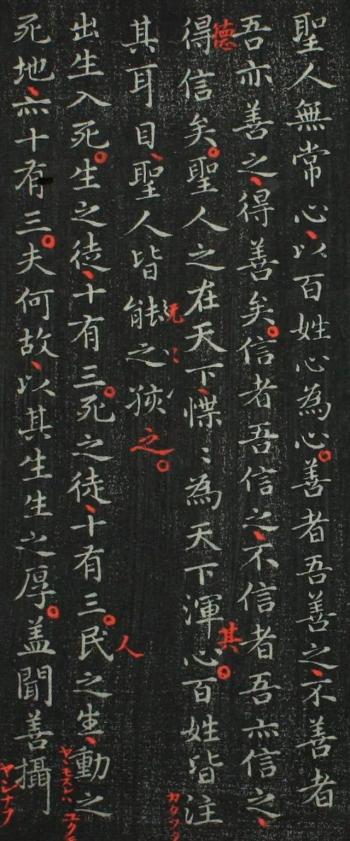 聖人無常心、以百姓心為心。善者吾善之、不善者
吾亦善之、得善矣。信者吾信之、不信者吾亦信之、
德
得信矣。聖人之在天下、惵〻為天下渾心。百姓皆注
其
其耳目、聖人皆能之孩之。
出生入死。生之徒、十有三。死之徒、十有三。民之生、動之
人
死地、亦十有三。夫何故、以其生生之厚。盖聞善攝